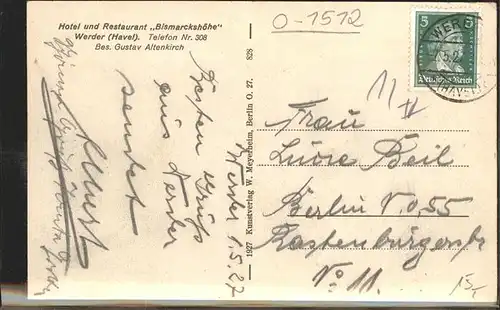 Hotel und Restaurant „Bismarckshöhe"
Werder (Havel). Telefon Nr. 308
Bes. Gustav Altenkirch
828
O-1512
5 5
Deutsches Reich
WERDER
(HAVEL)
Werder 1.5.27
Besten Gruß
aus Werder
sendet
1927 Kunstverlag W. Meyerheim, Berlin O. 27.
11 II
Frau
Lucie Beil
Berlin N.O. 55
Rastenburgerstr
No. 11.
15,-